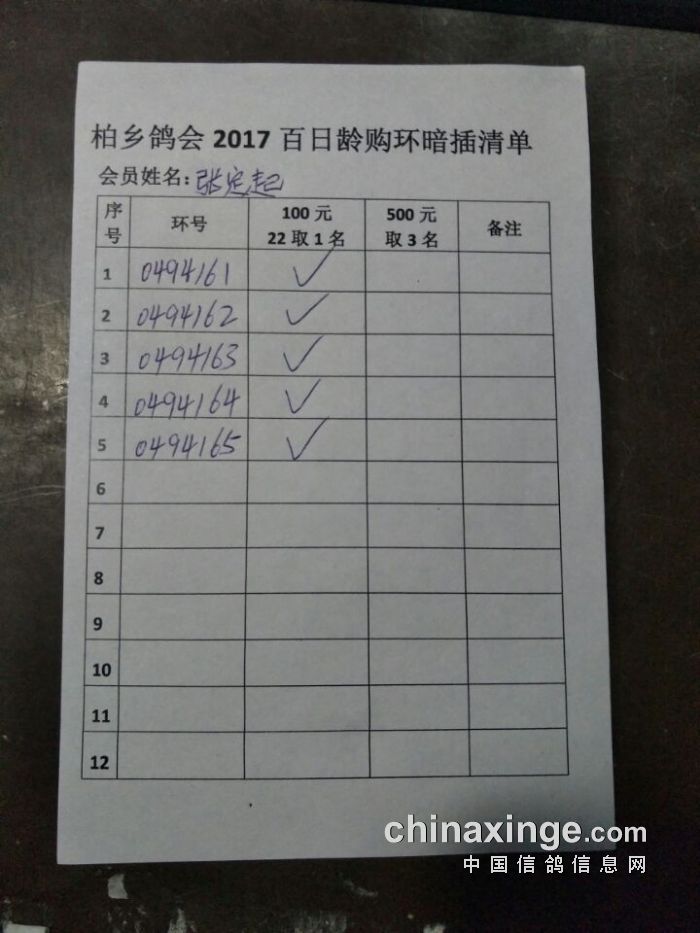 柏乡鸽会 2017 百日龄购环暗插清单
会员姓名: 张定起
序号 环号 100 元 22 取 1 名 500 元 取 3 名 备注
1 0494161 ✓
2 0494162 ✓
3 0494163 ✓
4 0494164 ✓
5 0494165 ✓
6
7
8
9
10
11
12
chinaxinge.com
中国信鸽信息网